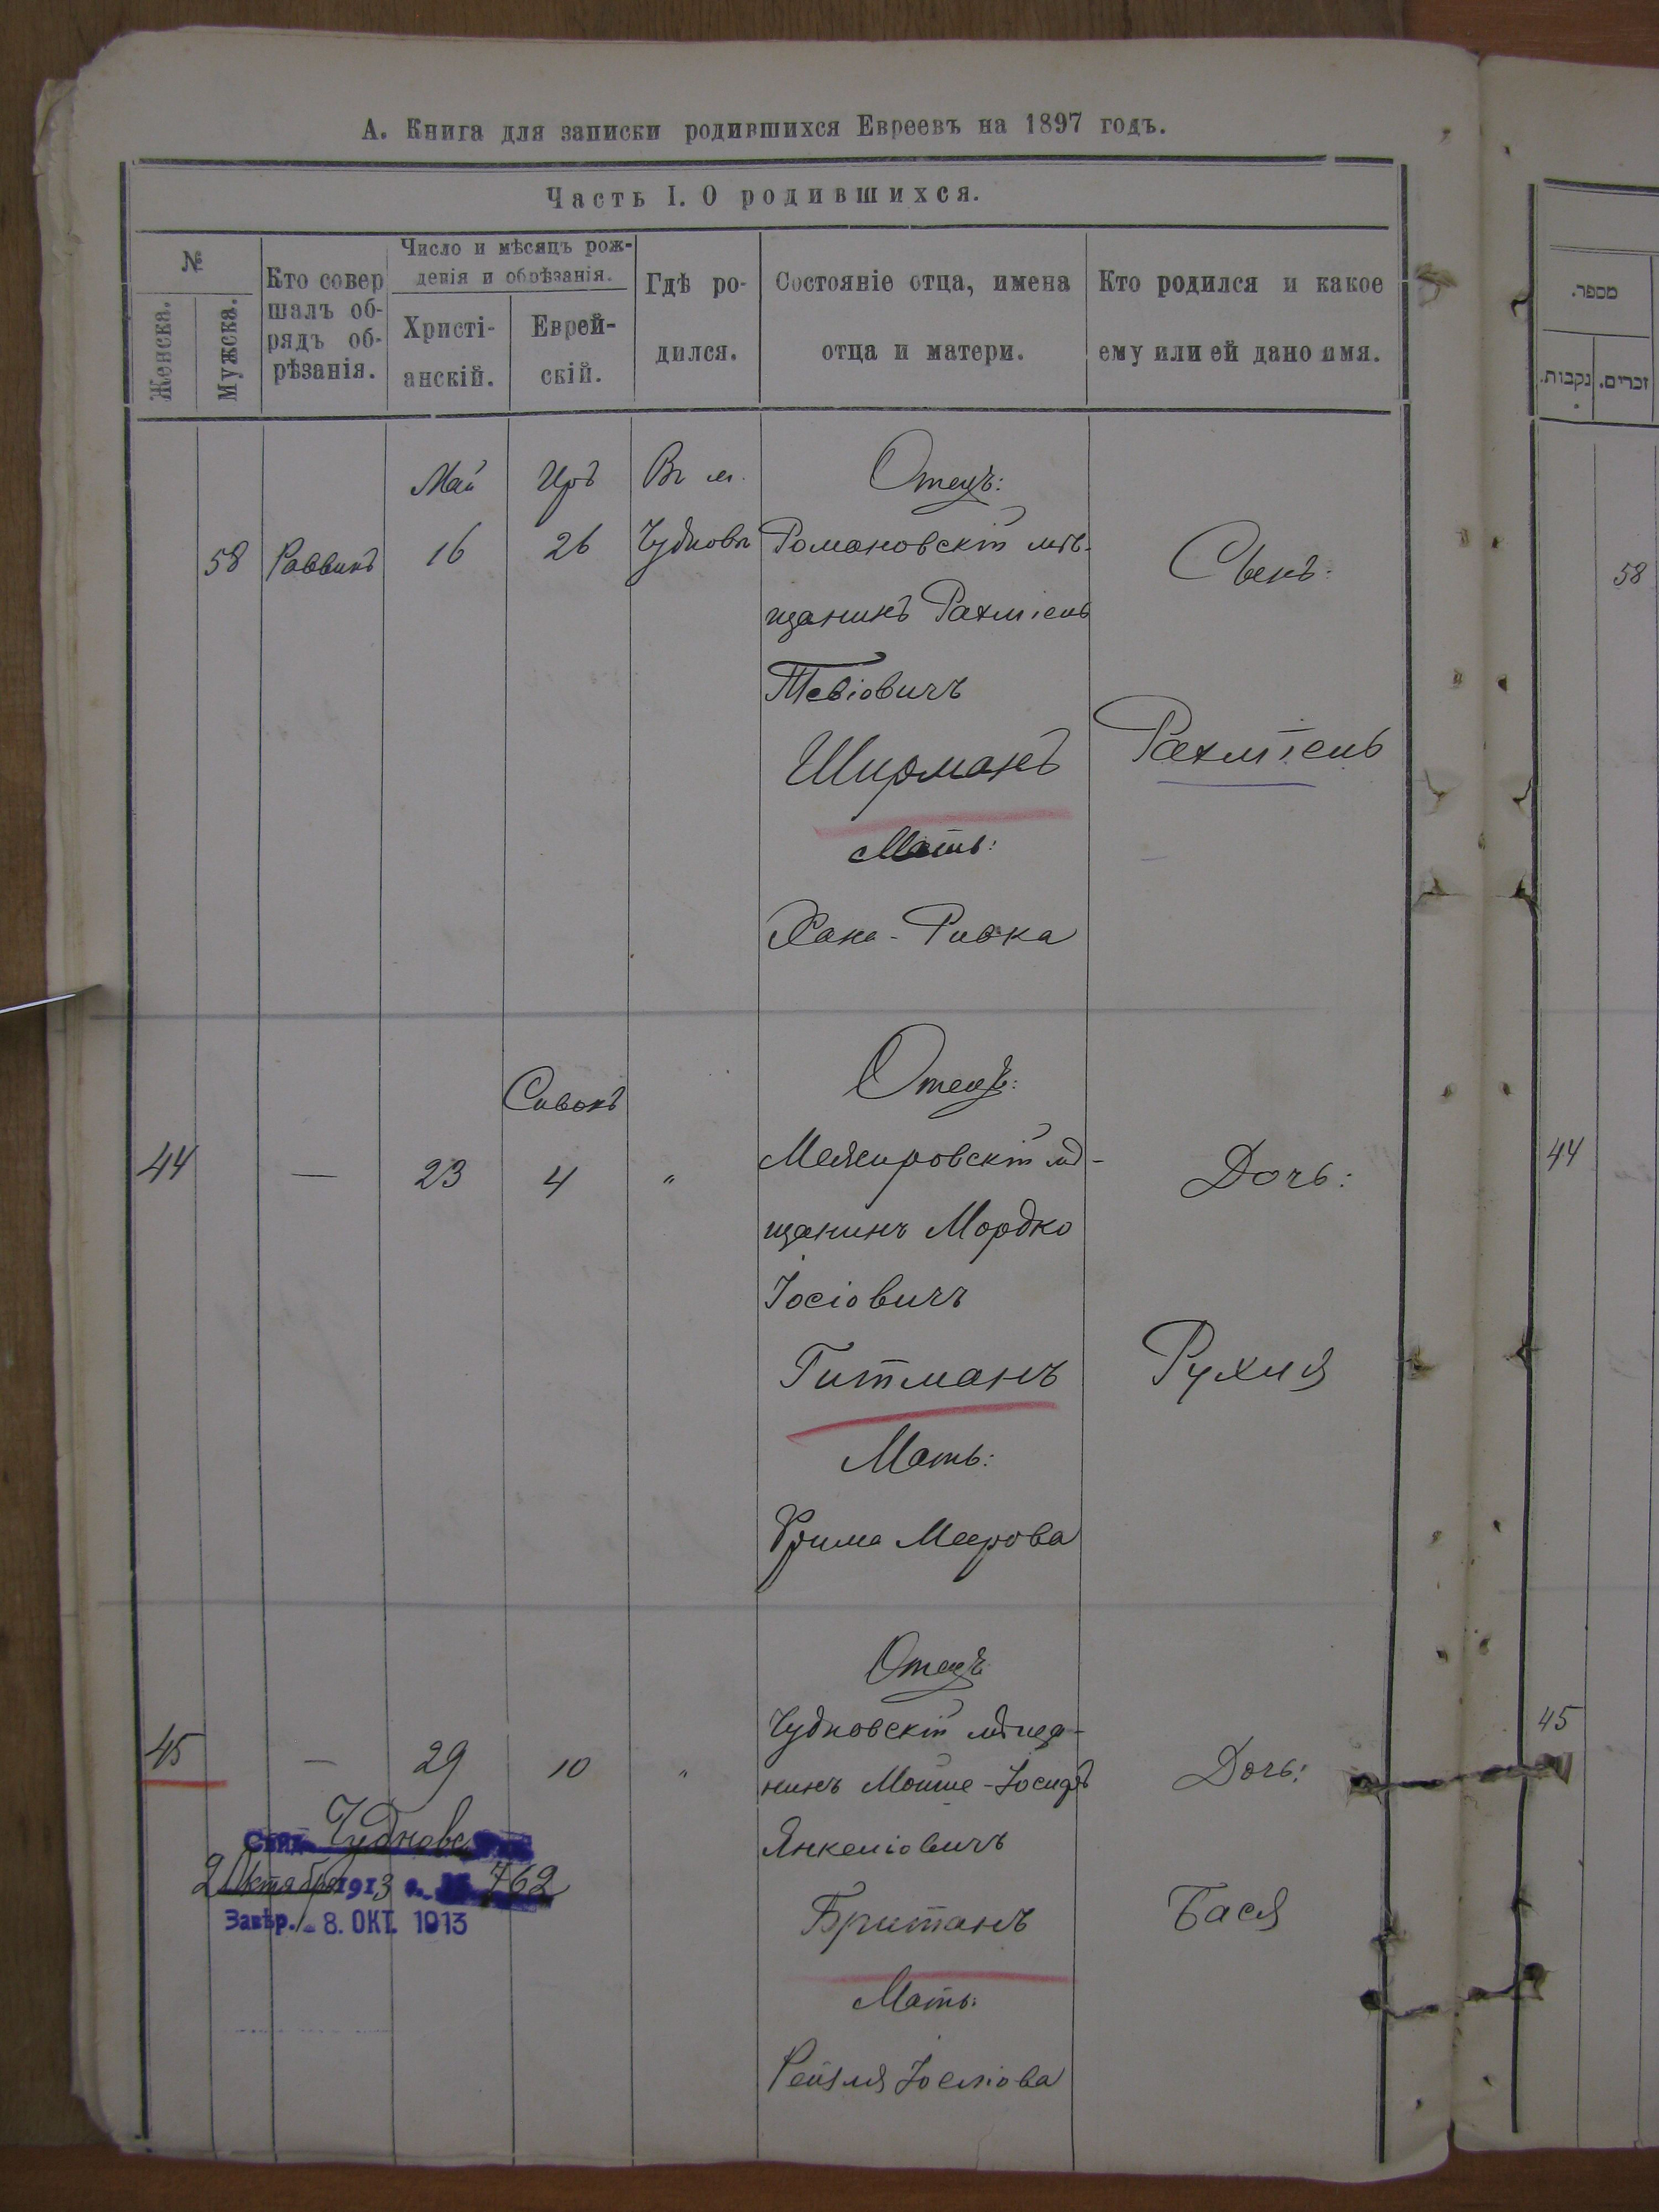 А. Книга для записки родившихся Евреевъ на 1897 годъ.
Часть I. О родившихся.
№
Женска.
Мужска.
Кто совер
шалъ об-
рядъ об-
рѣзанія.
Число и мѣсяцъ рож-
денія и обрѣзанія.
Христі-
анскій.
Еврей-
скій.
Гдѣ ро-
дился.
Состояніе отца, имена
отца и матери.
Кто родился и какое
ему или ей дано имя.
58
Раввинъ
Май
16
Иръ
26
Въ м.
Чудновѣ
Отецъ:
Романовскій мѣ-
щанинъ Рахміель
Тевіовичъ
Ширманъ
Мать:
Хана-Ривка
Сынъ:
Рахміель
44
—
23
Сиванъ
4
"
Отецъ:
Межировскій мѣ-
щанинъ Мордко
Іосіовичъ
Гитманъ
Мать:
Фрима Меерова
Дочь:
Рухля
45
—
29
10
"
Отецъ
Чудновскій мѣща-
нинъ Мошше-Іосифъ
Янкеліовичъ
Бритланъ
Мать:
Рейзля Іосіова
Дочь:
Бася
Чудновс
2 Октября 1913 762
Завѣр. 8. ОКТ. 1913
מספר.
נקבות.
זכרים.
58
44
45